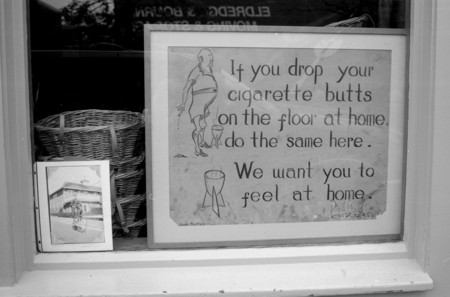 ELDREDGE & BOURNE
MOVING & STORAGE
If you drop your
cigarette butts
on the floor at home,
do the same here.
We want you to
feel at home.